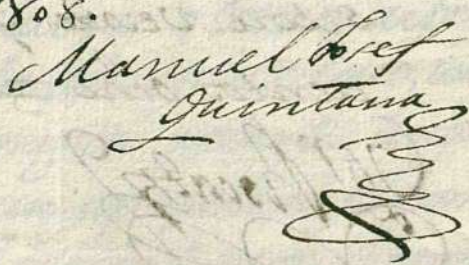 808.
Manuel Josef
Quintana